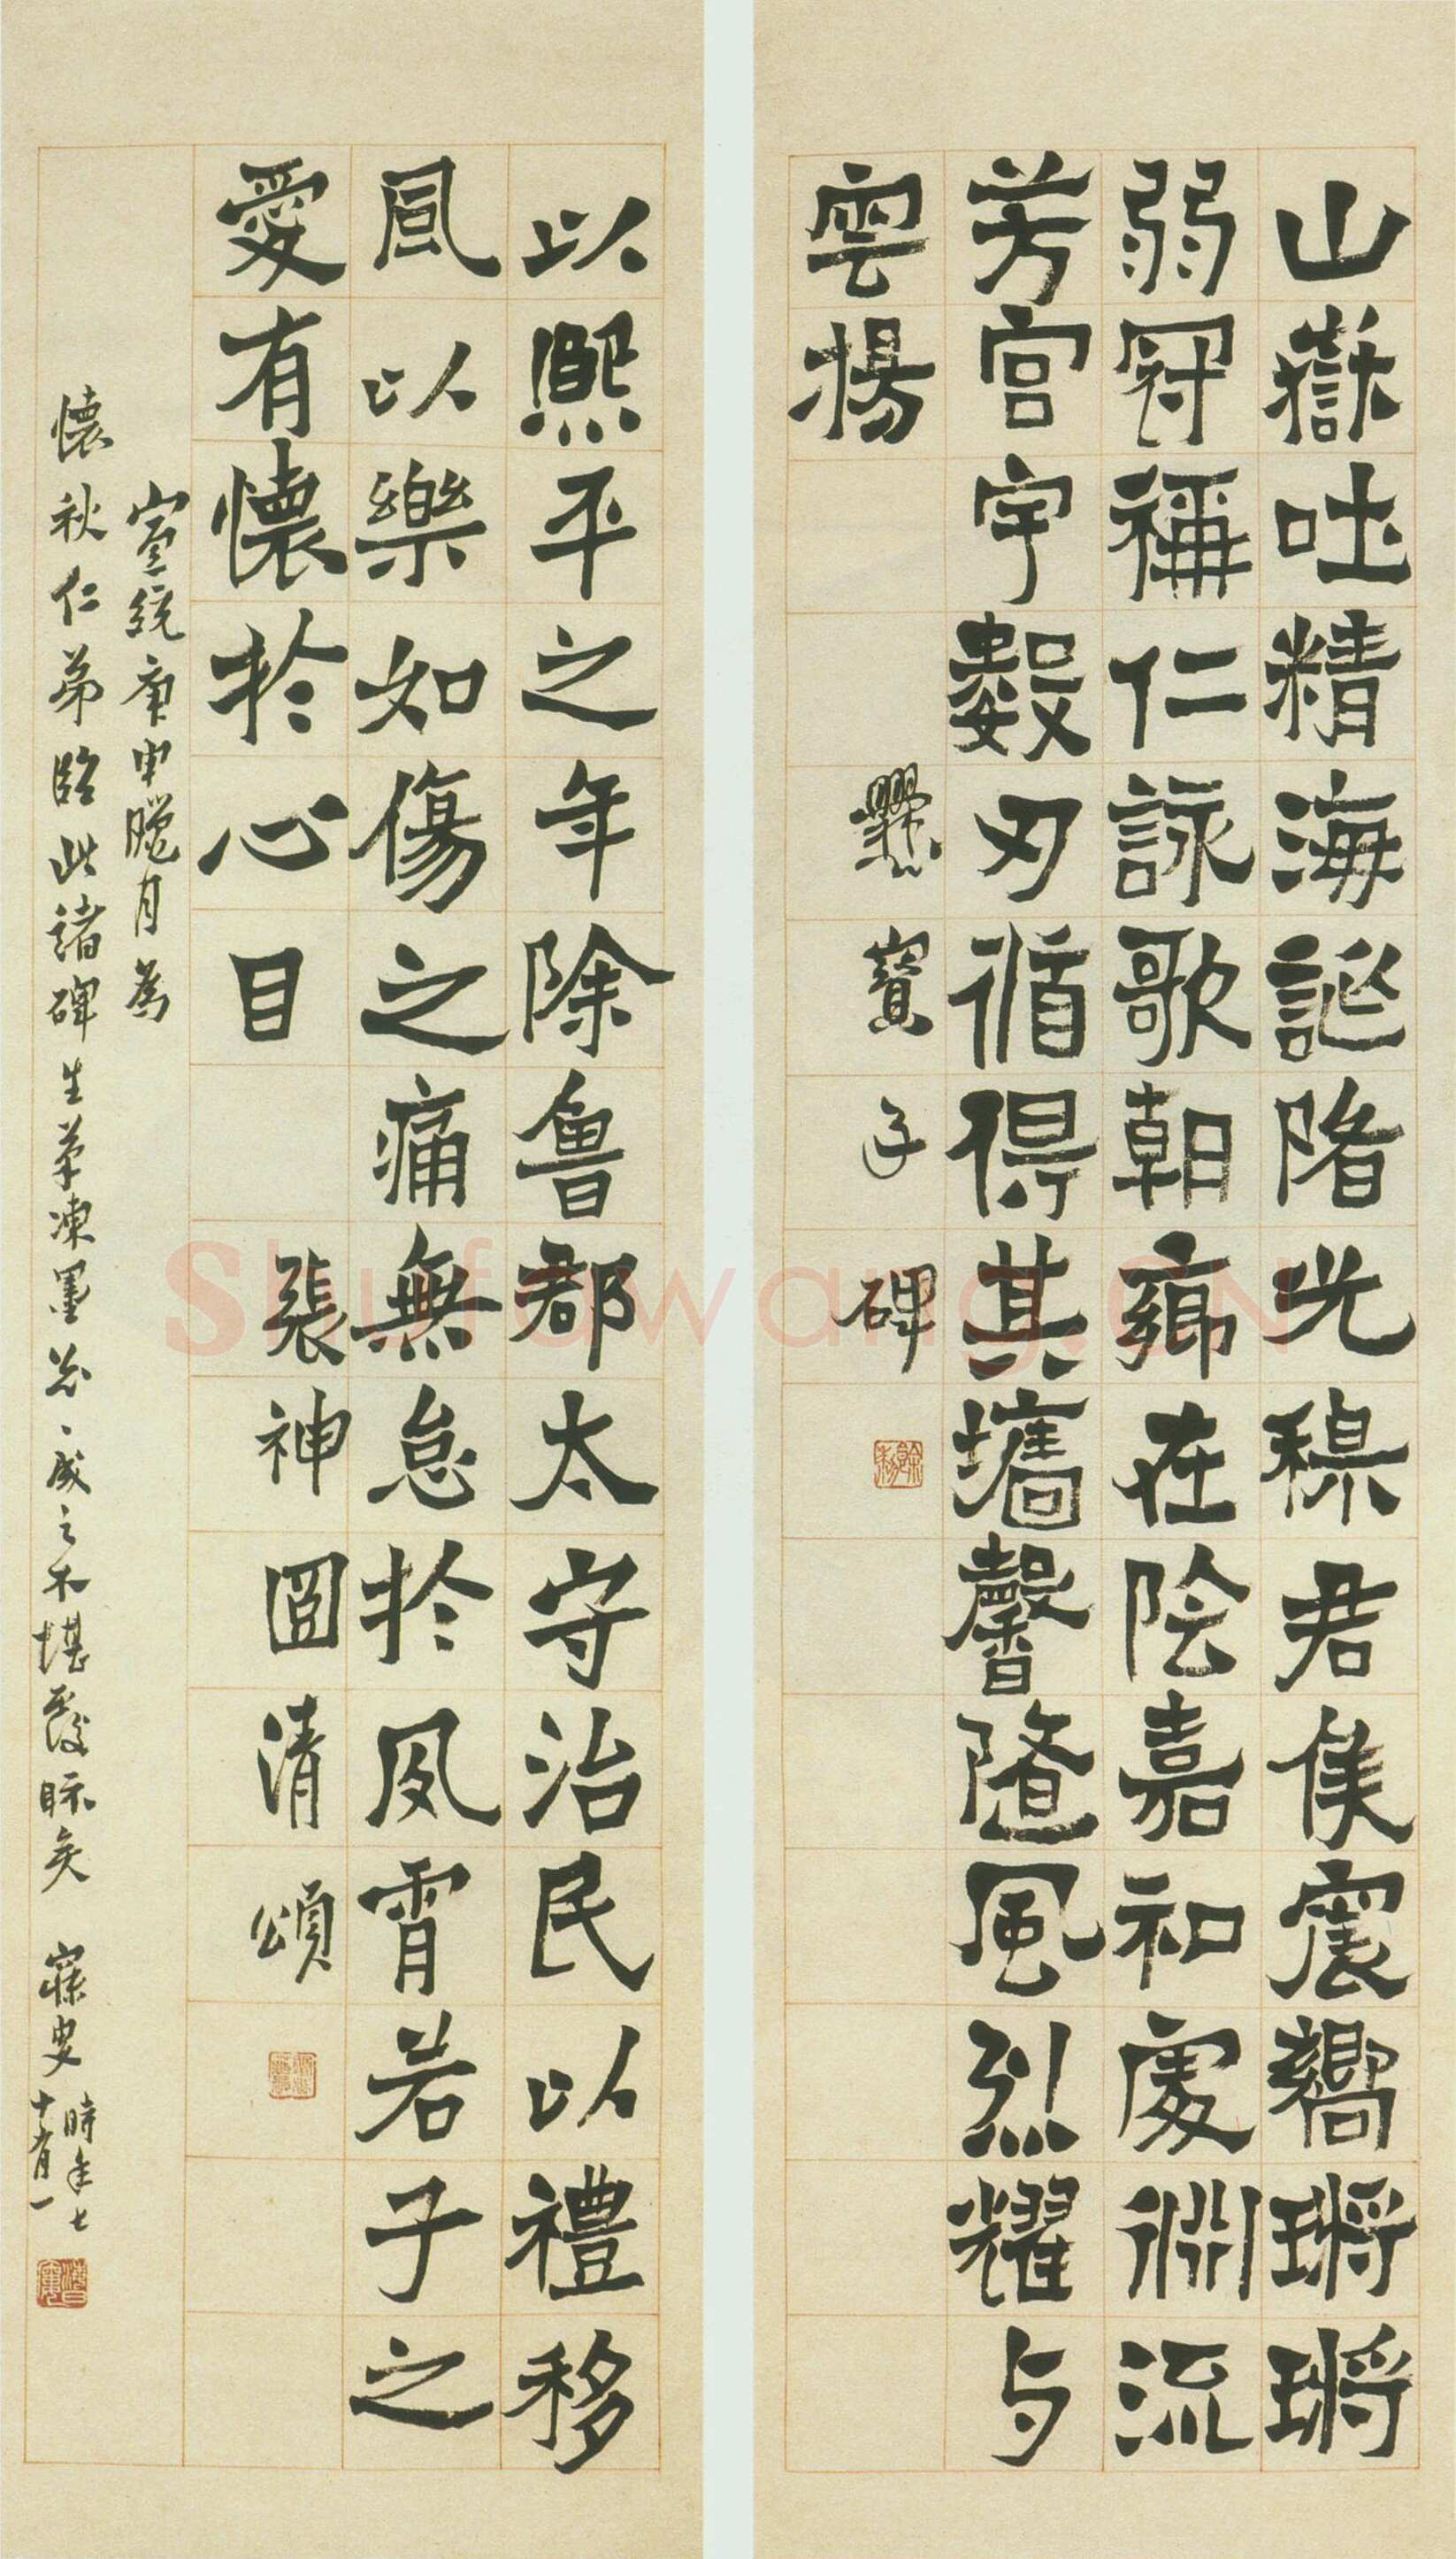 山嶽吐精海誕陏光穆君侯震嚮鏘鏘
弱冠稱仁詠歌朝鄉在陰嘉和處淵流
芳宮宇數刃循得其墻馨隨風烈耀与
雲揚
爨寶子碑
以熙平之年除魯郡太守治民以禮移
風以樂如傷之痛無怠於夙宵若子之
愛有懷於心目
張神囧清頌
宣統庚申臘月為
懷秋仁弟臨此諸碑生筆凍墨忽、成之不堪覆眎矣 寐叟
時年七
十有一
Shufawang.CN